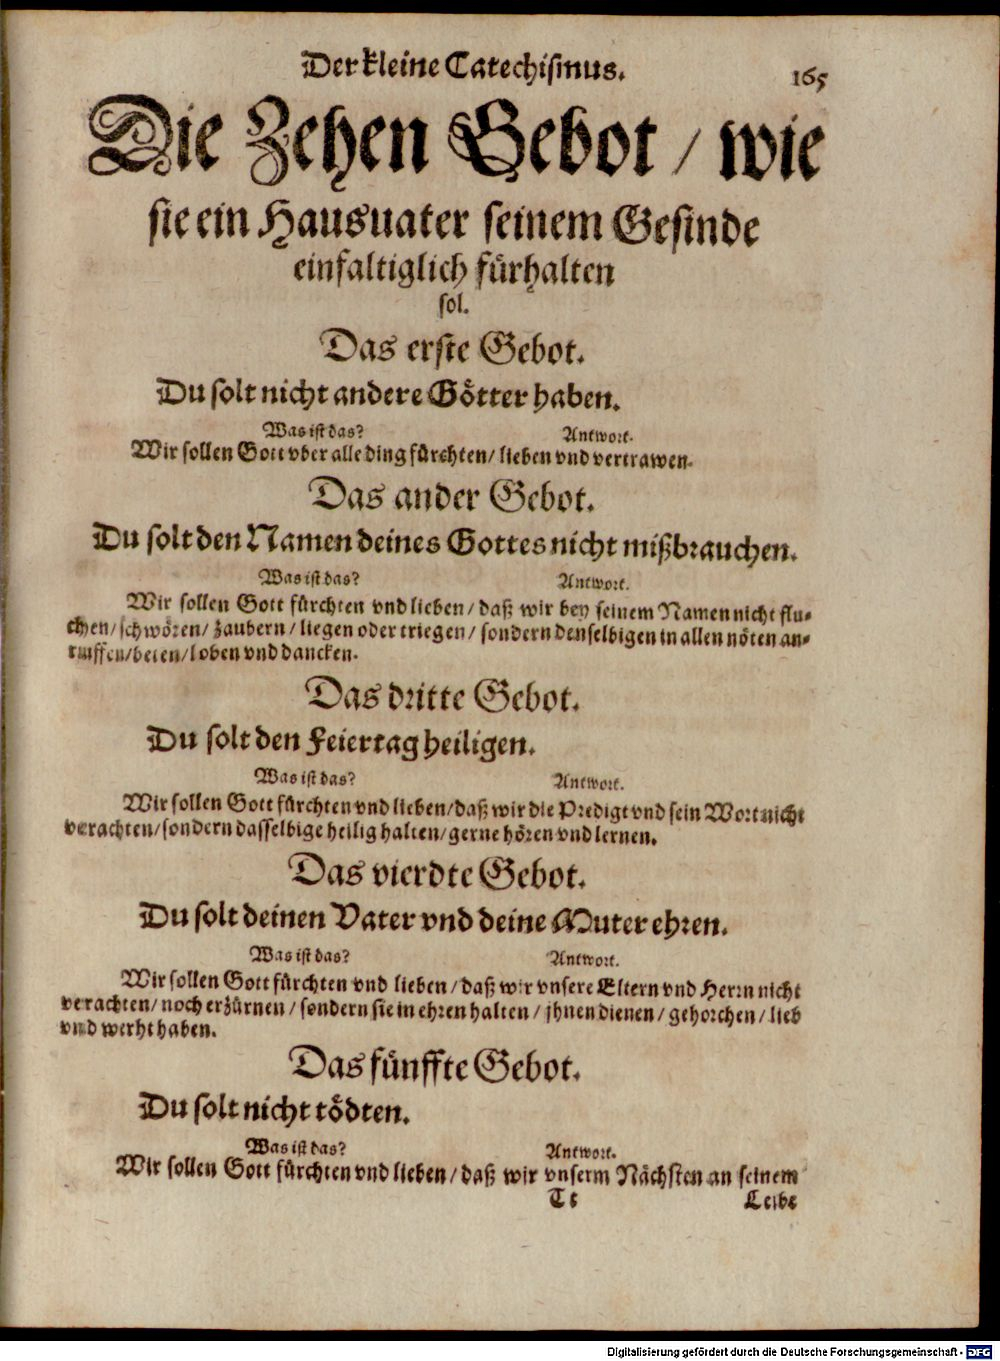 Der kleine Catechismus. 165
Die Zehen Gebot / wie
sie ein Hausuater seinem Gesinde
einfaltiglich fürhalten
sol.
Das erste Gebot.
Du solt nicht andere Götter haben.
Was ist das? Antwort.
Wir sollen Gott vber alle ding fürchten / lieben vnd vertrawen.
Das ander Gebot.
Du solt den Namen deines Gottes nicht mißbrauchen.
Was ist das? Antwort.
Wir sollen Gott fürchten vnd lieben / daß wir bey seinem Namen nicht flu-
chen / schwören / zaubern / liegen oder triegen / sondern denselbigen in allen nöten an-
ruffen / beten / loben vnd dancken.
Das dritte Gebot.
Du solt den Feiertag heiligen.
Was ist das? Antwort.
Wir sollen Gott fürchten vnd lieben / daß wir die Predigt vnd sein Wort nicht
verachten / sondern dasselbige heilig halten / gerne hören vnd lernen.
Das vierdte Gebot.
Du solt deinen Vater vnd deine Muter ehren.
Was ist das? Antwort.
Wir sollen Gott fürchten vnd lieben / daß wir vnsere Eltern vnd Herrn nicht
verachten / noch erzürnen / sondern sie in ehren halten / jhnen dienen / gehorchen / lieb
vnd werht haben.
Das fünffte Gebot.
Du solt nicht tödten.
Was ist das? Antwort.
Wir sollen Gott fürchten vnd lieben / daß wir vnserm Nächsten an seinem
Tt Leibe
Digitalisierung gefördert durch die Deutsche Forschungsgemeinschaft - DFG